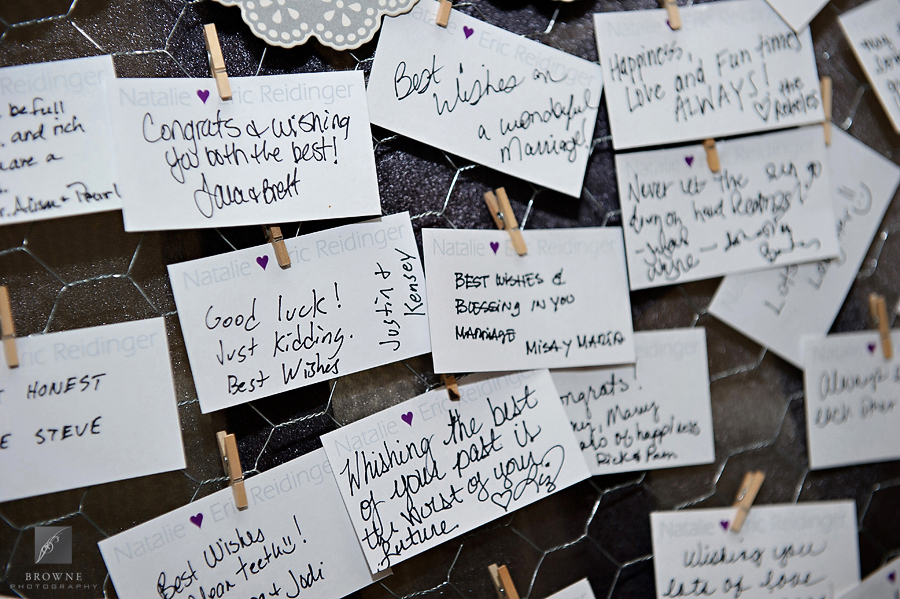 Reidinger
be full
and rich
have a
Natalie ♥ Eric Reidinger
Congrats & wishing
you both the best!
Natalie ♥ Eric Reidinger
Best Wishes on
a wonderful
Marriage!
Happiness,
Love and Fun times
ALWAYS!
♥ the
Natalie ♥ Eric Reidinger
Never let the
down on
Natalie ♥ Eric Reidinger
Good luck!
Just Kidding.
Best Wishes
Justin &
Kensey
Natalie ♥ Eric Reidinger
BEST WISHES &
BLESSING IN YOU
MARRIAGE
MISAY MARIA
Eric Reidinger
HONEST
STEVE
Natalie ♥ Eric Reidinger
Whishing the best
of your past is
the worst of your
future
♥ Liz
of happiness
Rick & Pam
Natalie
Always
each other
Natalie ♥ Eric Reidinger
Best Wishes
teeth!!
& Jodi
Natalie ♥ Eric Reidinger
Wishing you
lots of love
BROWNE
PHOTOGRAPHY